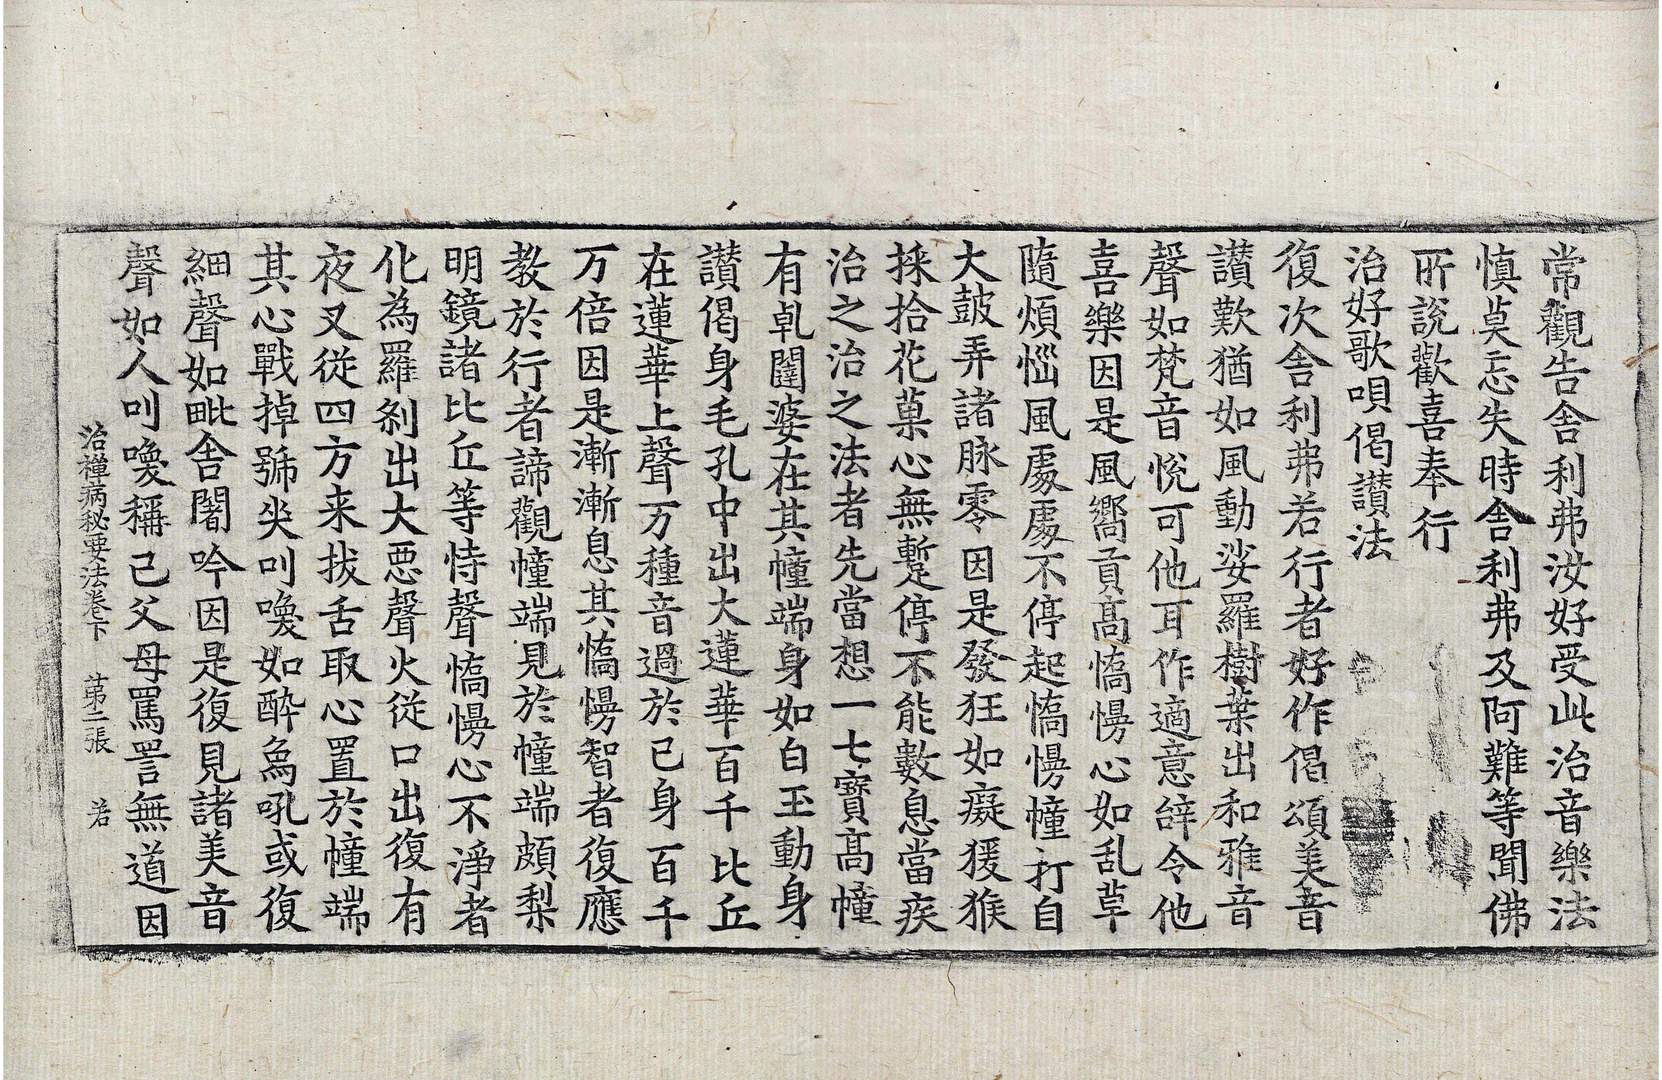 常觀告舎利弗汝好受此治音樂法
慎莫忘失時舎利弗及阿難等聞佛
所說歡喜奉行
治好歌唄偈讃法
復次舎利弗若行者好作偈頌美音
讃歎猶如風動娑羅樹葉出和雅音
聲如梵音悅可他耳作適意辝令他
喜樂因是風嚮貢髙憍慢心如乱草
隨煩惱風處處不停起憍慢幢打自
大皷弄諸脉零因是發狂如癡猨猴
採拾花菓心無蹔停不能數息當疾
治之治之法者先當想一七寶髙幢
有乹闥婆在其幢端身如白玉動身
讃偈身毛孔中出大蓮華百千比丘
在蓮華上聲万種音過於己身百千
万倍因是漸漸息其憍慢智者復應
教於行者諦觀幢端見於幢端頗梨
明鏡諸比丘等恃聲憍慢心不淨者
化為羅剎出大惡聲火從口出復有
夜叉從四方来拔舌取心置於幢端
其心戰掉號哭叫喚如醉象吼或復
細聲如毗舎闍吟因是復見諸美音
聲如人叫喚稱己父母罵詈無道因
治禪病秘要法卷下　苐二張　若